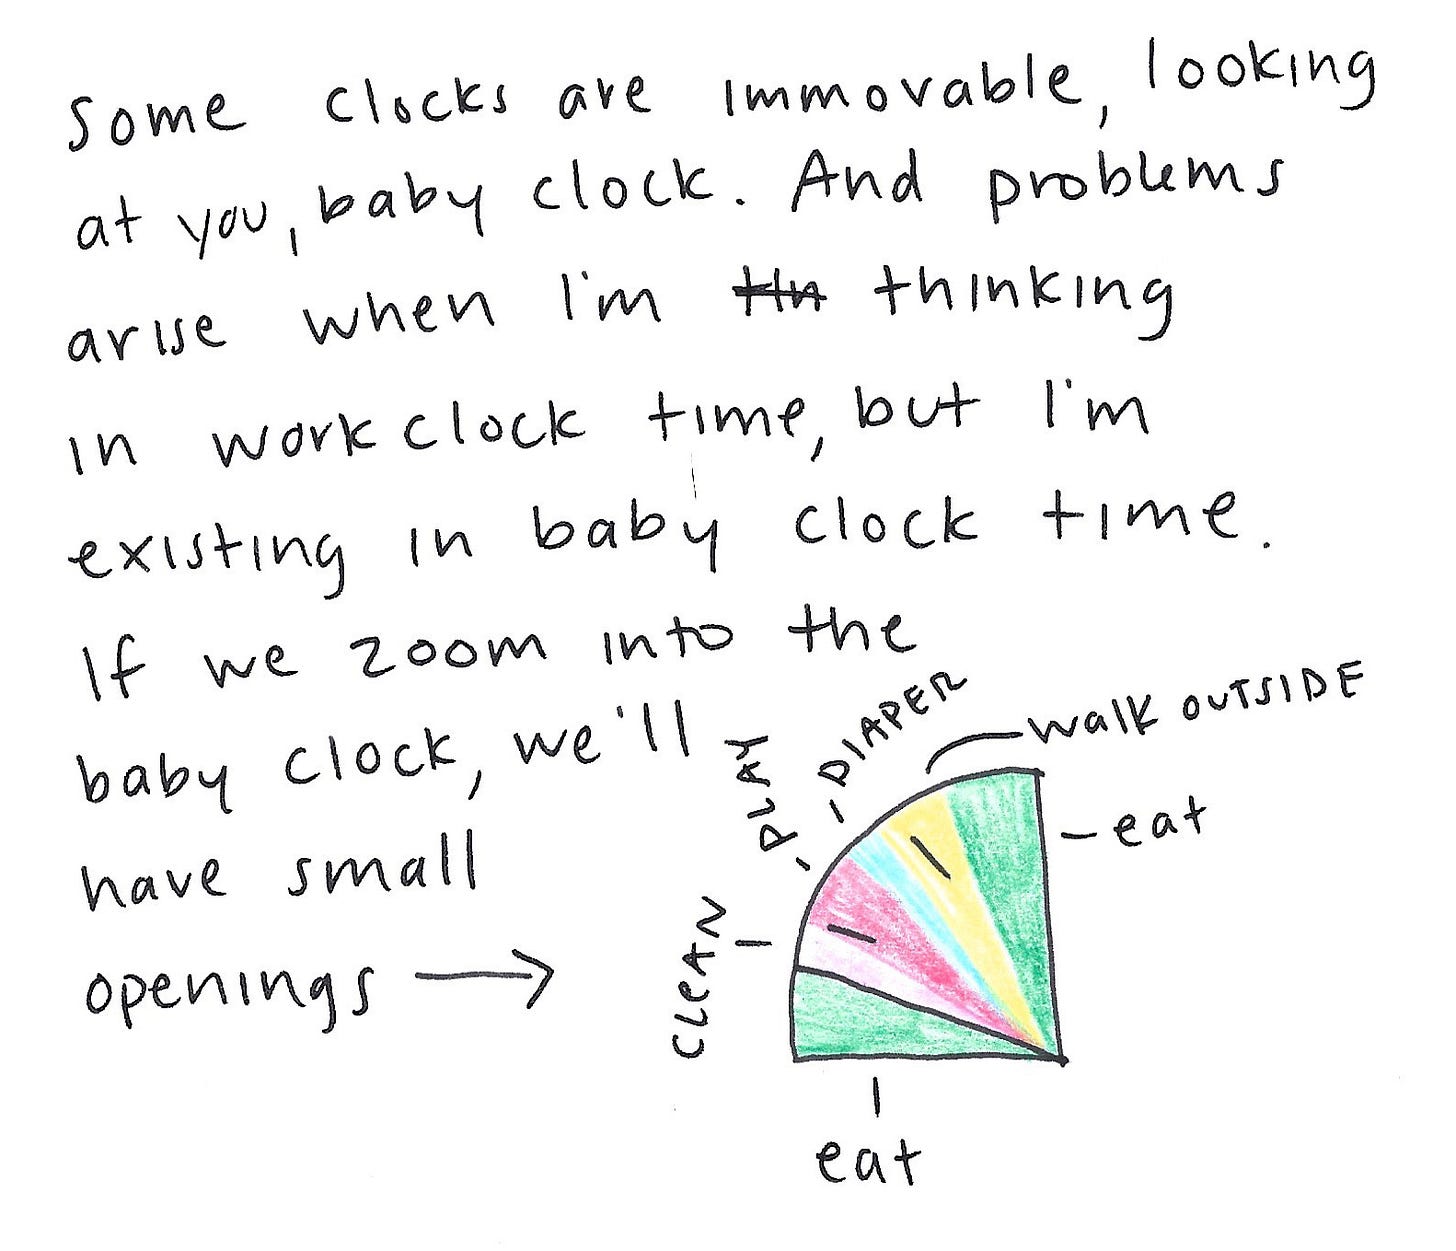 Some clocks are immovable, looking
at you, baby clock. And problems
arise when I'm thin thinking
in work clock time, but I'm
existing in baby clock time.
If we zoom into the
baby clock, we'll
have small
openings →
CLEAN
PLAY
DIAPER
WALK OUTSIDE
eat
eat